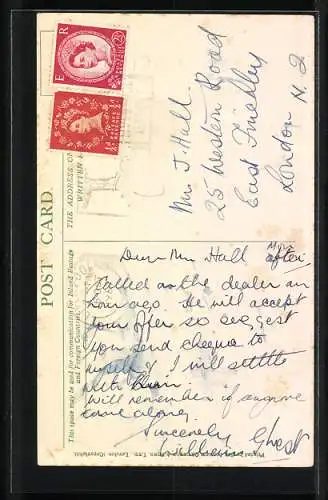 POST CARD.
THE ADDRESS
WRITTEN
This space may be used for communication for Inland Postage
and Foreign Countries.
E R
2½D
½D
Mrs J. Hall.
25 Western Road
East Finchley
London N. 2
Dear Mrs Hall
Mon after.
called as the dealer an
hour ago. He will accept
your offer so suggest
you send cheque to
myself & I will settle
with him.
Will remember if anyone
came along.
Sincerely